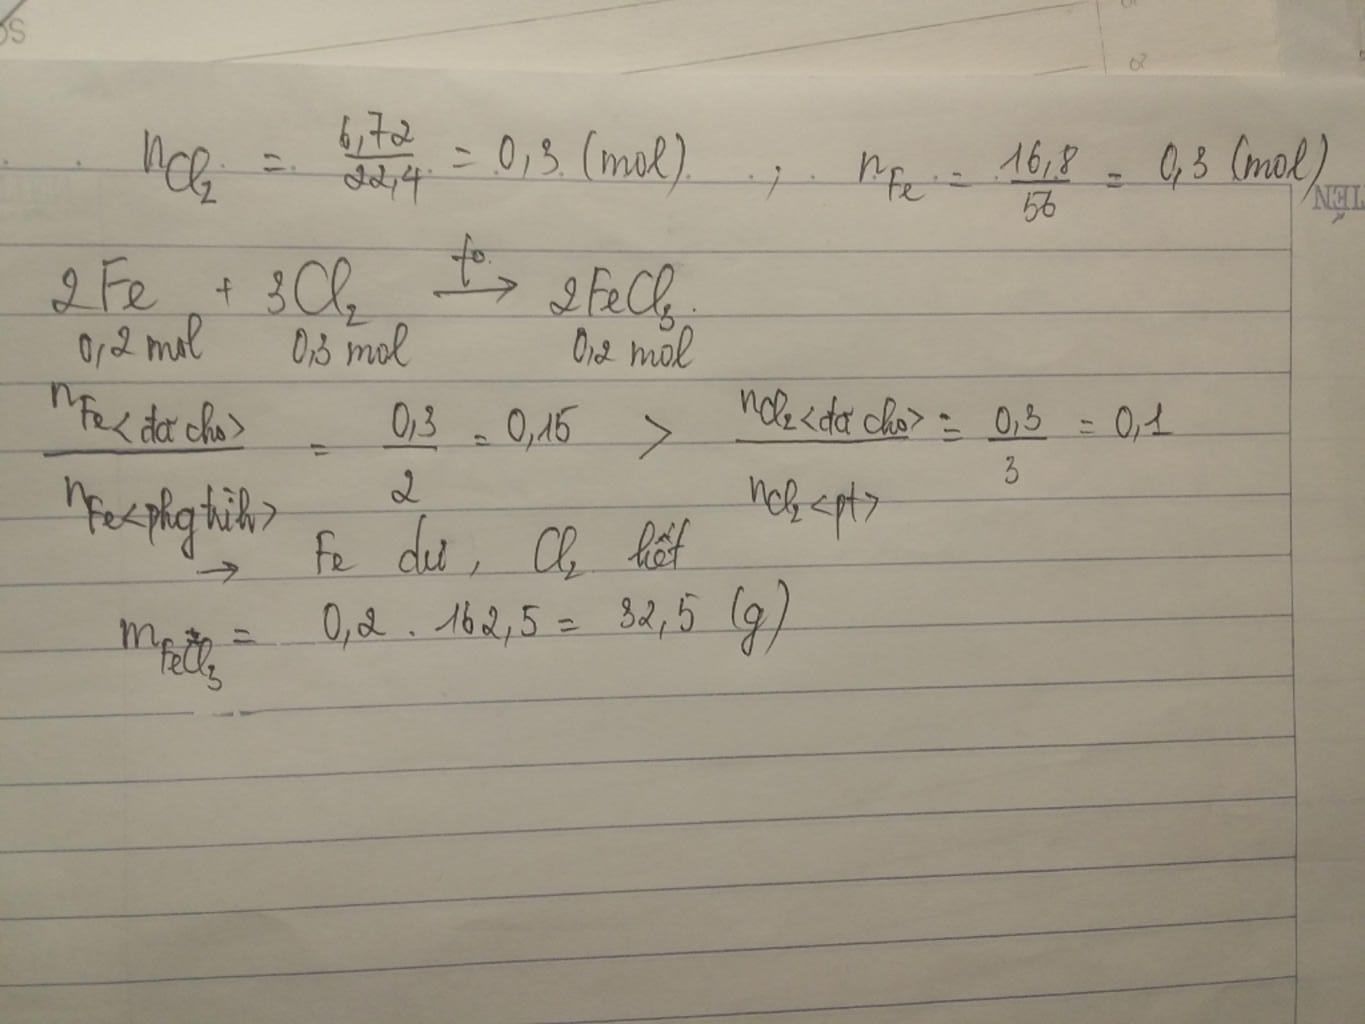 OS
n_Cl₂ = 6,72/22,4 = 0,3 (mol) ; n_Fe = 16,8/56 = 0,3 (mol)
TÊN
2Fe + 3Cl₂ —t°→ 2FeCl₃
0,2 mol 0,3 mol 0,2 mol
n_Fe<đã cho>/n_Fe<phg trìh> = 0,3/2 = 0,15 > n_Cl₂<đã cho>/n_Cl₂<pt> = 0,3/3 = 0,1
→ Fe dư, Cl₂ hết
m_FeCl₃ = 0,2 . 162,5 = 32,5 (g)